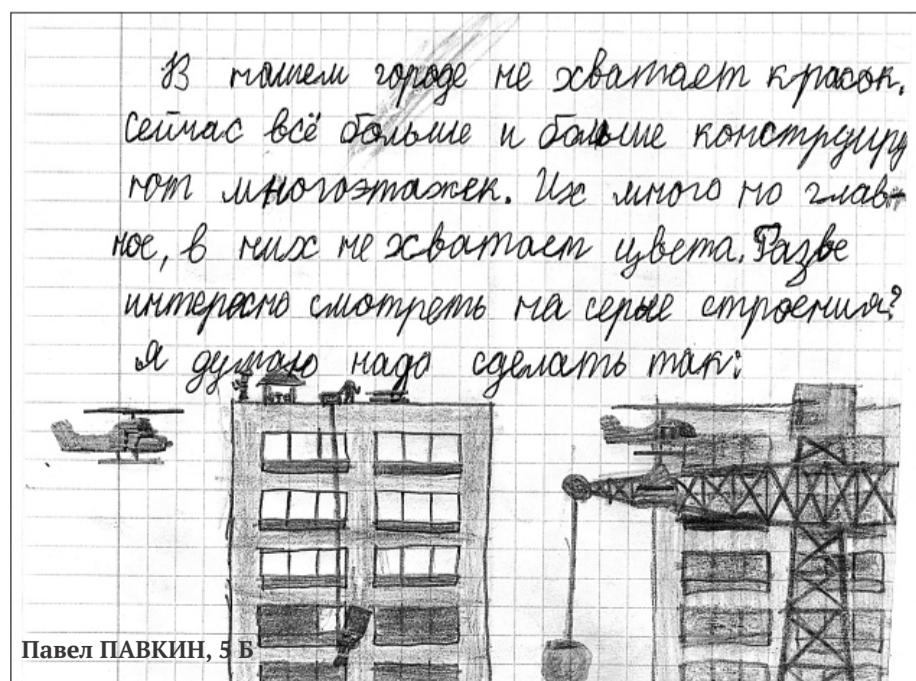 В нашем городе не хватает красок.
Сейчас всё больше и больше конструиру
ют многоэтажек. Их много но глав-
ное, в них не хватает цвета. Разве
интересно смотреть на серые строения?
Я думаю надо сделать так:
Павел ПАВКИН, 5 Б